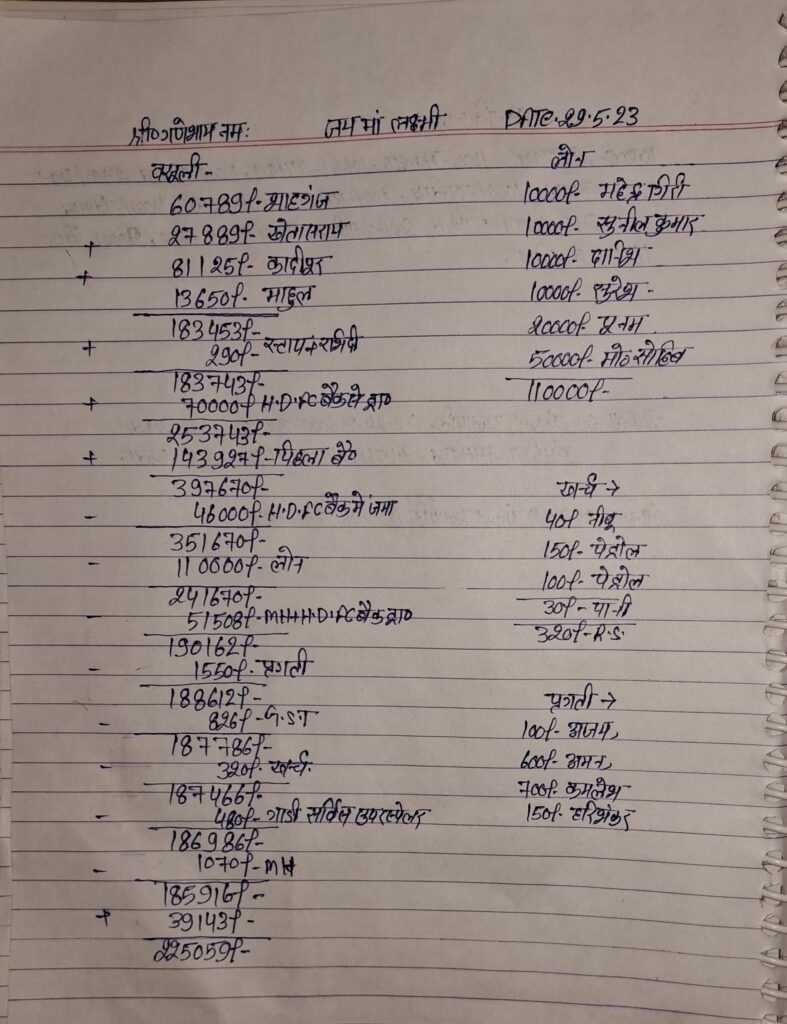 श्री० गणेशाय नमः जय मां लक्ष्मी DATE. 29.5.23
वसूली -
60789/- शाहगंज
+ 27889/- खेतासराय
+ 81125/- कादीपुर
13650/- माहुल
183453/-
+ 290/-
183743/-
+ 70000/- H.D.FC बैंक से प्रा०
253743/-
+ 143927/- पिछला बै०
397670/-
- 46000/- H.D.FC बैंक में जमा
351670/-
- 110000/- लोन
241670/-
- 51508/- MH H.D.FC बैंक प्रा०
190162/-
- 1550/- प्रगती
188612/-
- 826/- G.S.T
187786/-
- 320/- खर्च.
187466/-
- 480/- गाडी सर्विस
186986/-
- 1070/- MH
185916/-
+ 39143/-
225059/-
लोन
10000/- महेन्द्र गिरी
10000/- सुनील कुमार
10000/- दानिश
10000/- सुरेश -
20000/- पूनम
50000/- मो०
110000/-
खर्च →
40/- नीबू
150/- पेट्रोल
100/- पेट्रोल
30/- पानी
320/- R.S.
प्रगती →
100/- अजय,
600/- अमन,
700/- कमलेश
150/- हरिशंकर